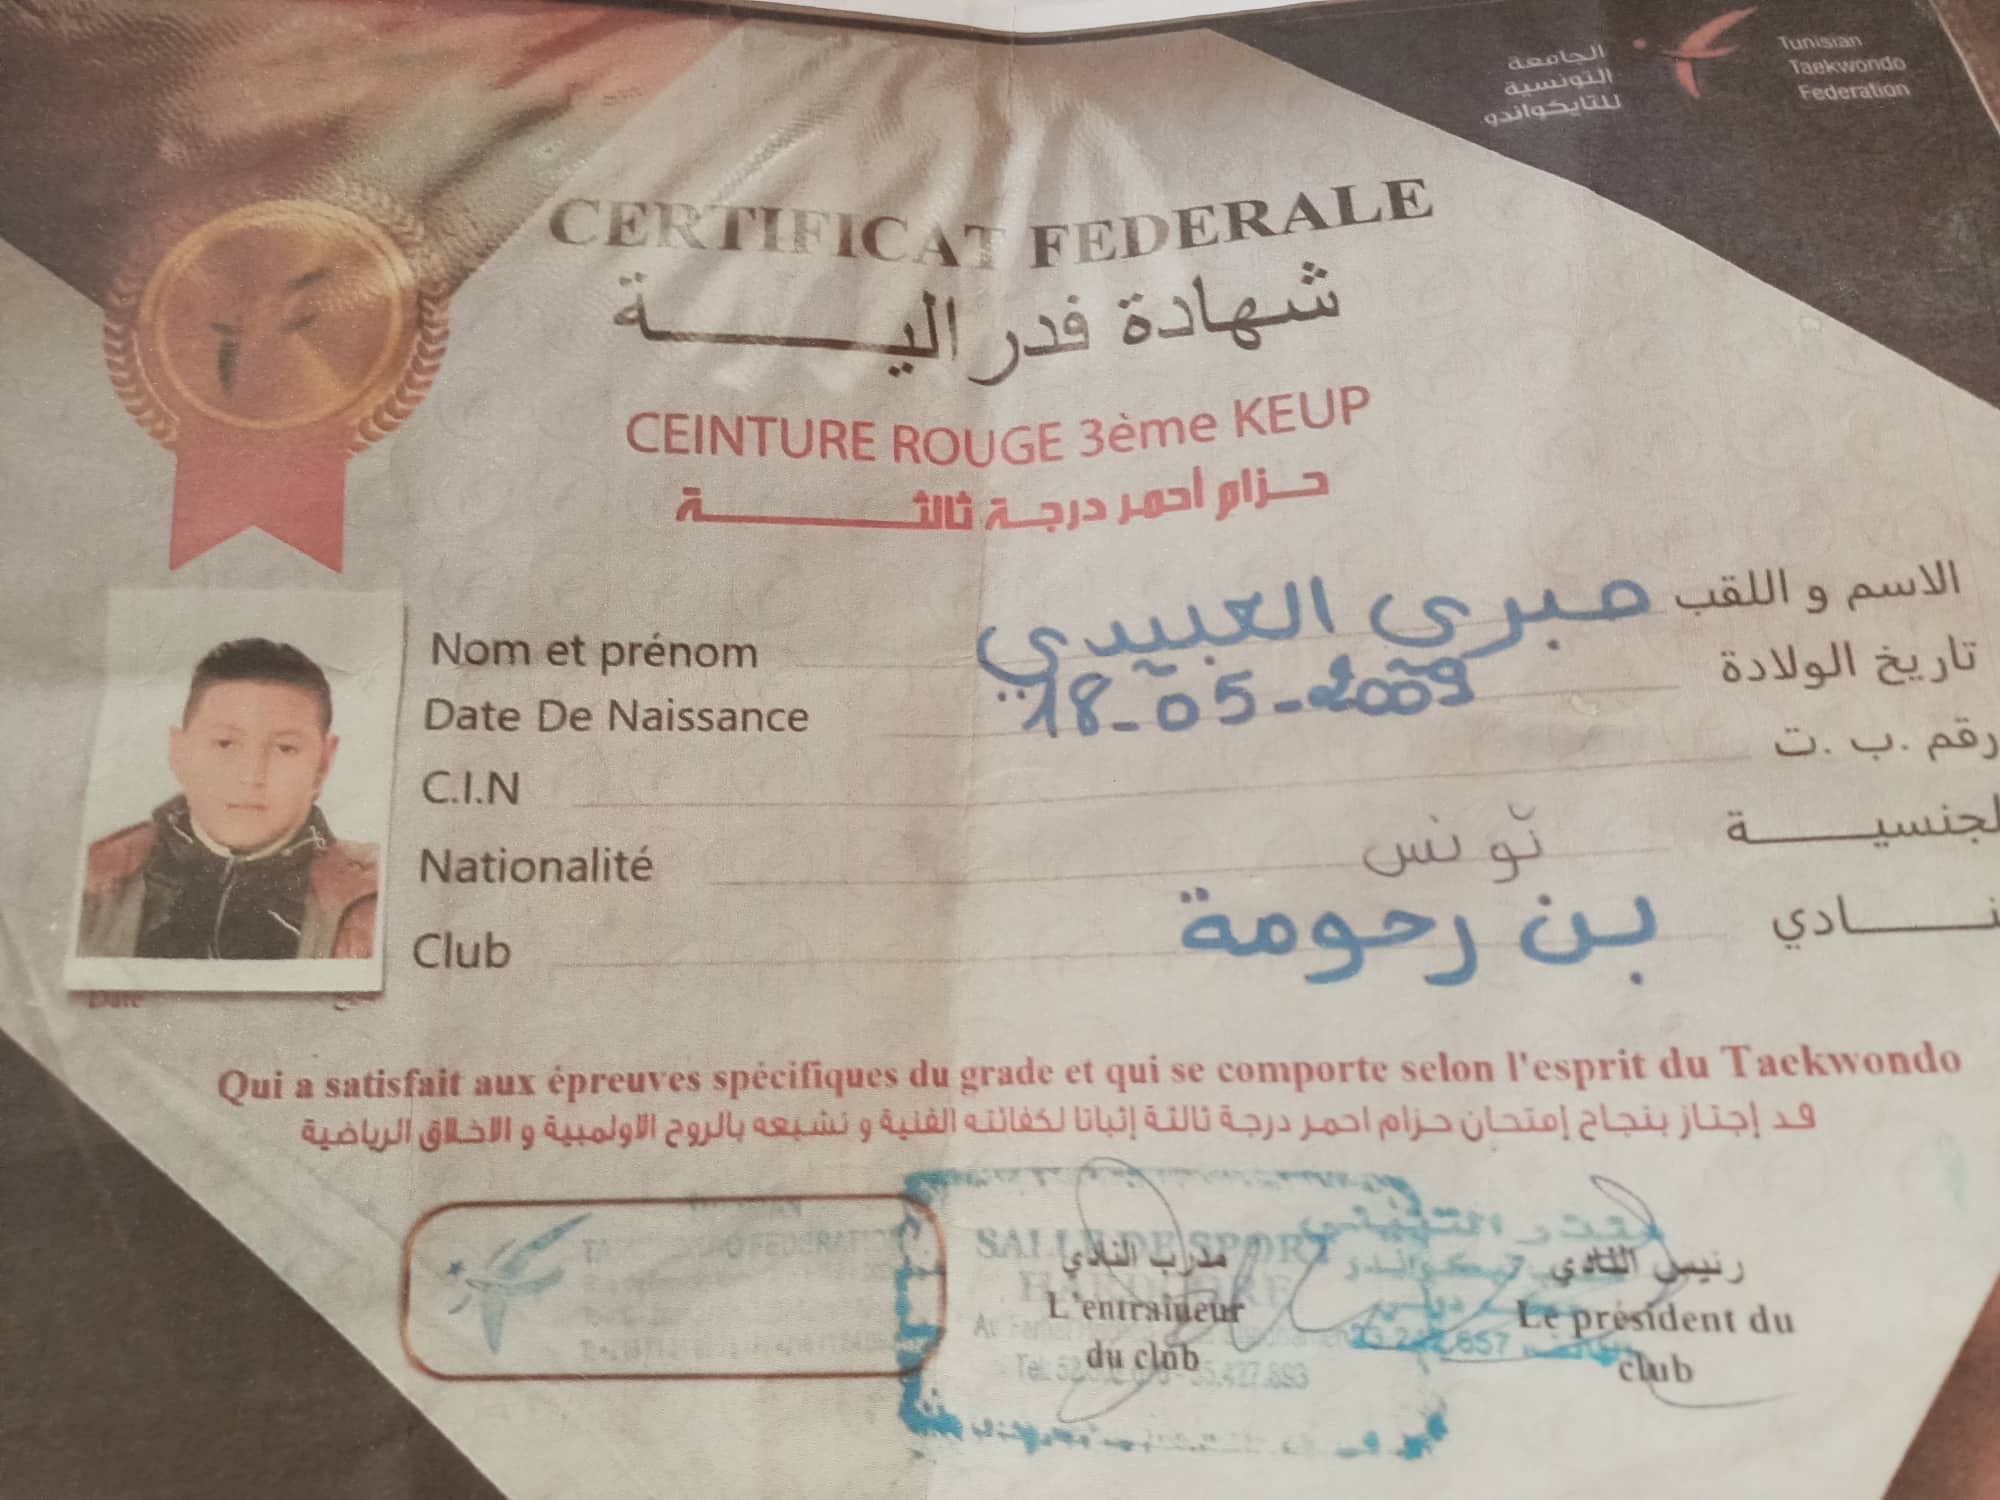 الجامعة
التونسية
للتايكواندو
Tunisian
Taekwondo
Federation
CERTIFICAT FEDERALE
شهادة فدراليـــــــة
CEINTURE ROUGE 3ème KEUP
حـزام أحمر درجـة ثالثـــــــة
Nom et prénom صبري العبيدي الاسم و اللقب
Date De Naissance 18-05-2009 تاريخ الولادة
C.I.N رقم .ب .ت
Nationalité تونس لجنسيـــــة
Club بن رحومة نـــــادي
Date
Qui a satisfait aux épreuves spécifiques du grade et qui se comporte selon l'esprit du Taekwondo
قد إجتاز بنجاح إمتحان حزام احمر درجة ثالثة إثباتا لكفائته الفنية و تشبعه بالروح الأولمبية و الاخلاق الرياضية
SALLE DE SPORT
مدرب النادي
L'entraineur
du club
رئيس النادي
Le président du
club